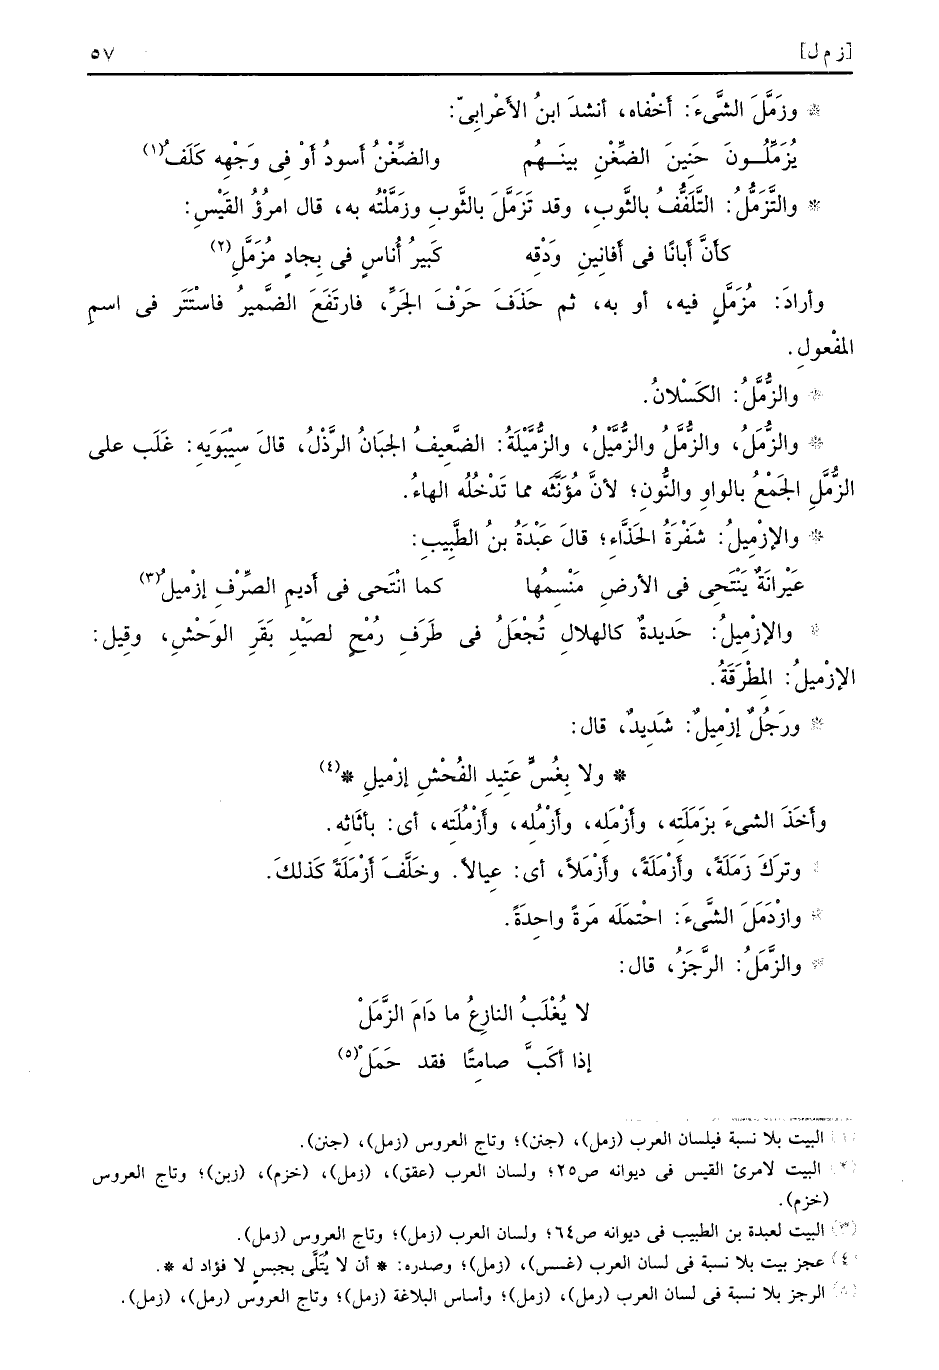 [ز م ل] ٥٧
* وزَمَّلَ الشَّىءَ: أخْفاه، أنشدَ ابنُ الأعْرابىّ:
يُزَمِّلُــونَ حَنِينَ الضِّغْنِ بينَــهُم والضِّغْنُ أسودُ أوْ فِى وَجْهِه كَلَفُ(١)
* والتَّزَمُّلُ: التَّلَفُّفُ بالثَّوبِ، وقد تَزَمَّلَ بالثَّوبِ وزَمَّلْتُه به، قال امرؤُ القَيْسِ:
كأنَّ أبانًا فى أفانِينِ وَدْقِه كَبيرُ أُناسٍ فى بِجادٍ مُزَمَّلِ(٢)
وأرادَ: مُزَمَّلٍ فيه، أو به، ثم حَذَفَ حَرْفَ الجَرِّ، فارتَفَعَ الضَّميرُ فاسْتَتَر فى اسمِ
المفْعولِ.
* والزُّمَّلُ: الكَسْلانُ.
* والزُّمَلُ، والزُّمَّلُ والزُّمَّيْلُ، والزُّمَّيْلَةُ: الضَّعيفُ الجَبَانُ الرَّذْلُ، قالَ سِيْبَوَيه: غَلَب على
الزُّمَّلِ الجَمْعُ بالواوِ والنُّونِ؛ لأنَّ مُؤنَّثَه مما تَدْخُلُه الهاءُ.
* والإزْمِيلُ: شَفْرَةُ الحَذَّاءِ؛ قالَ عَبْدَةُ بنُ الطَّبِيبِ:
عَيْرانَةٌ يَنْتَحِى فى الأرضِ مَنْسِمُها كما انْتَحى فى أَديمِ الصِّرْفِ إزْميلُ(٣)
* والإزْمِيلُ: حَديدةٌ كالهلالِ تُجْعَلُ فى طَرَفِ رُمْحٍ لصَيْدِ بَقَرِ الوَحْشِ، وقيل:
الإزْميلُ: المِطْرَقَةُ.
* ورَجُلٌ إزْمِيلٌ: شَديدٌ، قال:
* ولا بِغُسٍّ عَتِيدِ الفُحْشِ إزْمِيلِ *(٤)
وأخَذَ الشىءَ بزَمَلَتِه، وأزْمَلِه، وأزْمُلِه، وأزْمُلَتِه، أى: بأثاثِه.
* وتركَ زَمَلَةً، وأزْمَلَةً، وأزْملاً، أى: عيالاً. وخَلَّفَ أزْمَلَةً كَذلكَ.
* وازْدَمَلَ الشَّىءَ: احْتمَلَه مَرةً واحِدَةً.
* والزَّمَلُ: الرَّجَزُ، قال:
لا يُغْلَبُ النازِعُ ما دَامَ الزَّمَلْ
إذا أكَبَّ صامِتًا فقد حَمَلْ(٥)
(١) البيت بلا نسبة فيلسان العرب (زمل)، (جنن)؛ وتاج العروس (زمل)، (جنن).
(٢) البيت لامرئ القيس فى ديوانه ص٢٥؛ ولسان العرب (عقق)، (زمل)، (خزم)، (زبن)؛ وتاج العروس
(خزم).
(٣) البيت لعبدة بن الطبيب فى ديوانه ص٦٤؛ ولسان العرب (زمل)؛ وتاج العروس (زمل).
(٤) عجز بيت بلا نسبة فى لسان العرب (غسس)، (زمل)؛ وصدره: * أن لا يُتَلَّى بجبسٍ لا فؤاد له *.
(٥) الرجز بلا نسبة فى لسان العرب (رمل)، (زمل)؛ وأساس البلاغة (زمل)؛ وتاج العروس (رمل)، (زمل).